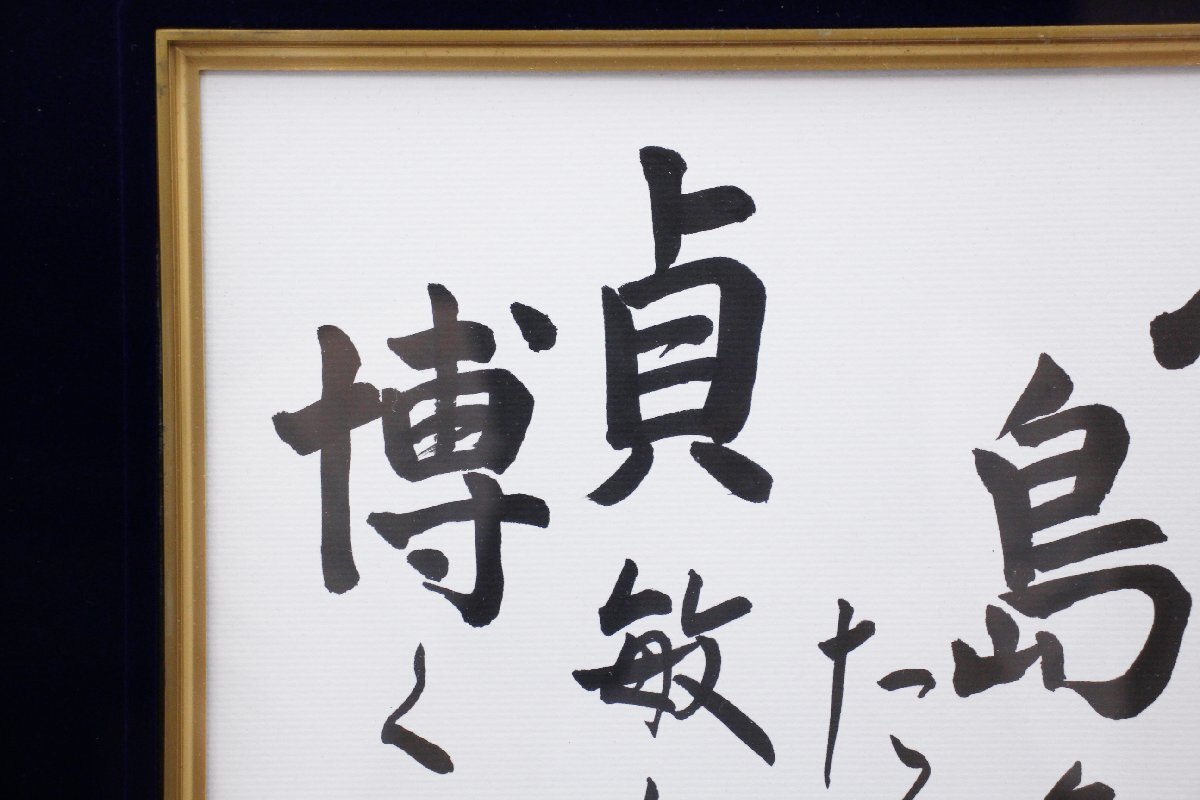 島
たう
貞敏
博く